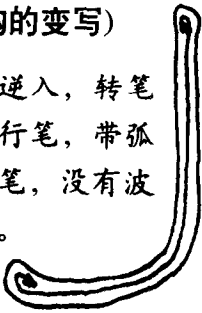 的变写)
逆入，转笔
行笔，带弧
笔，没有波
。